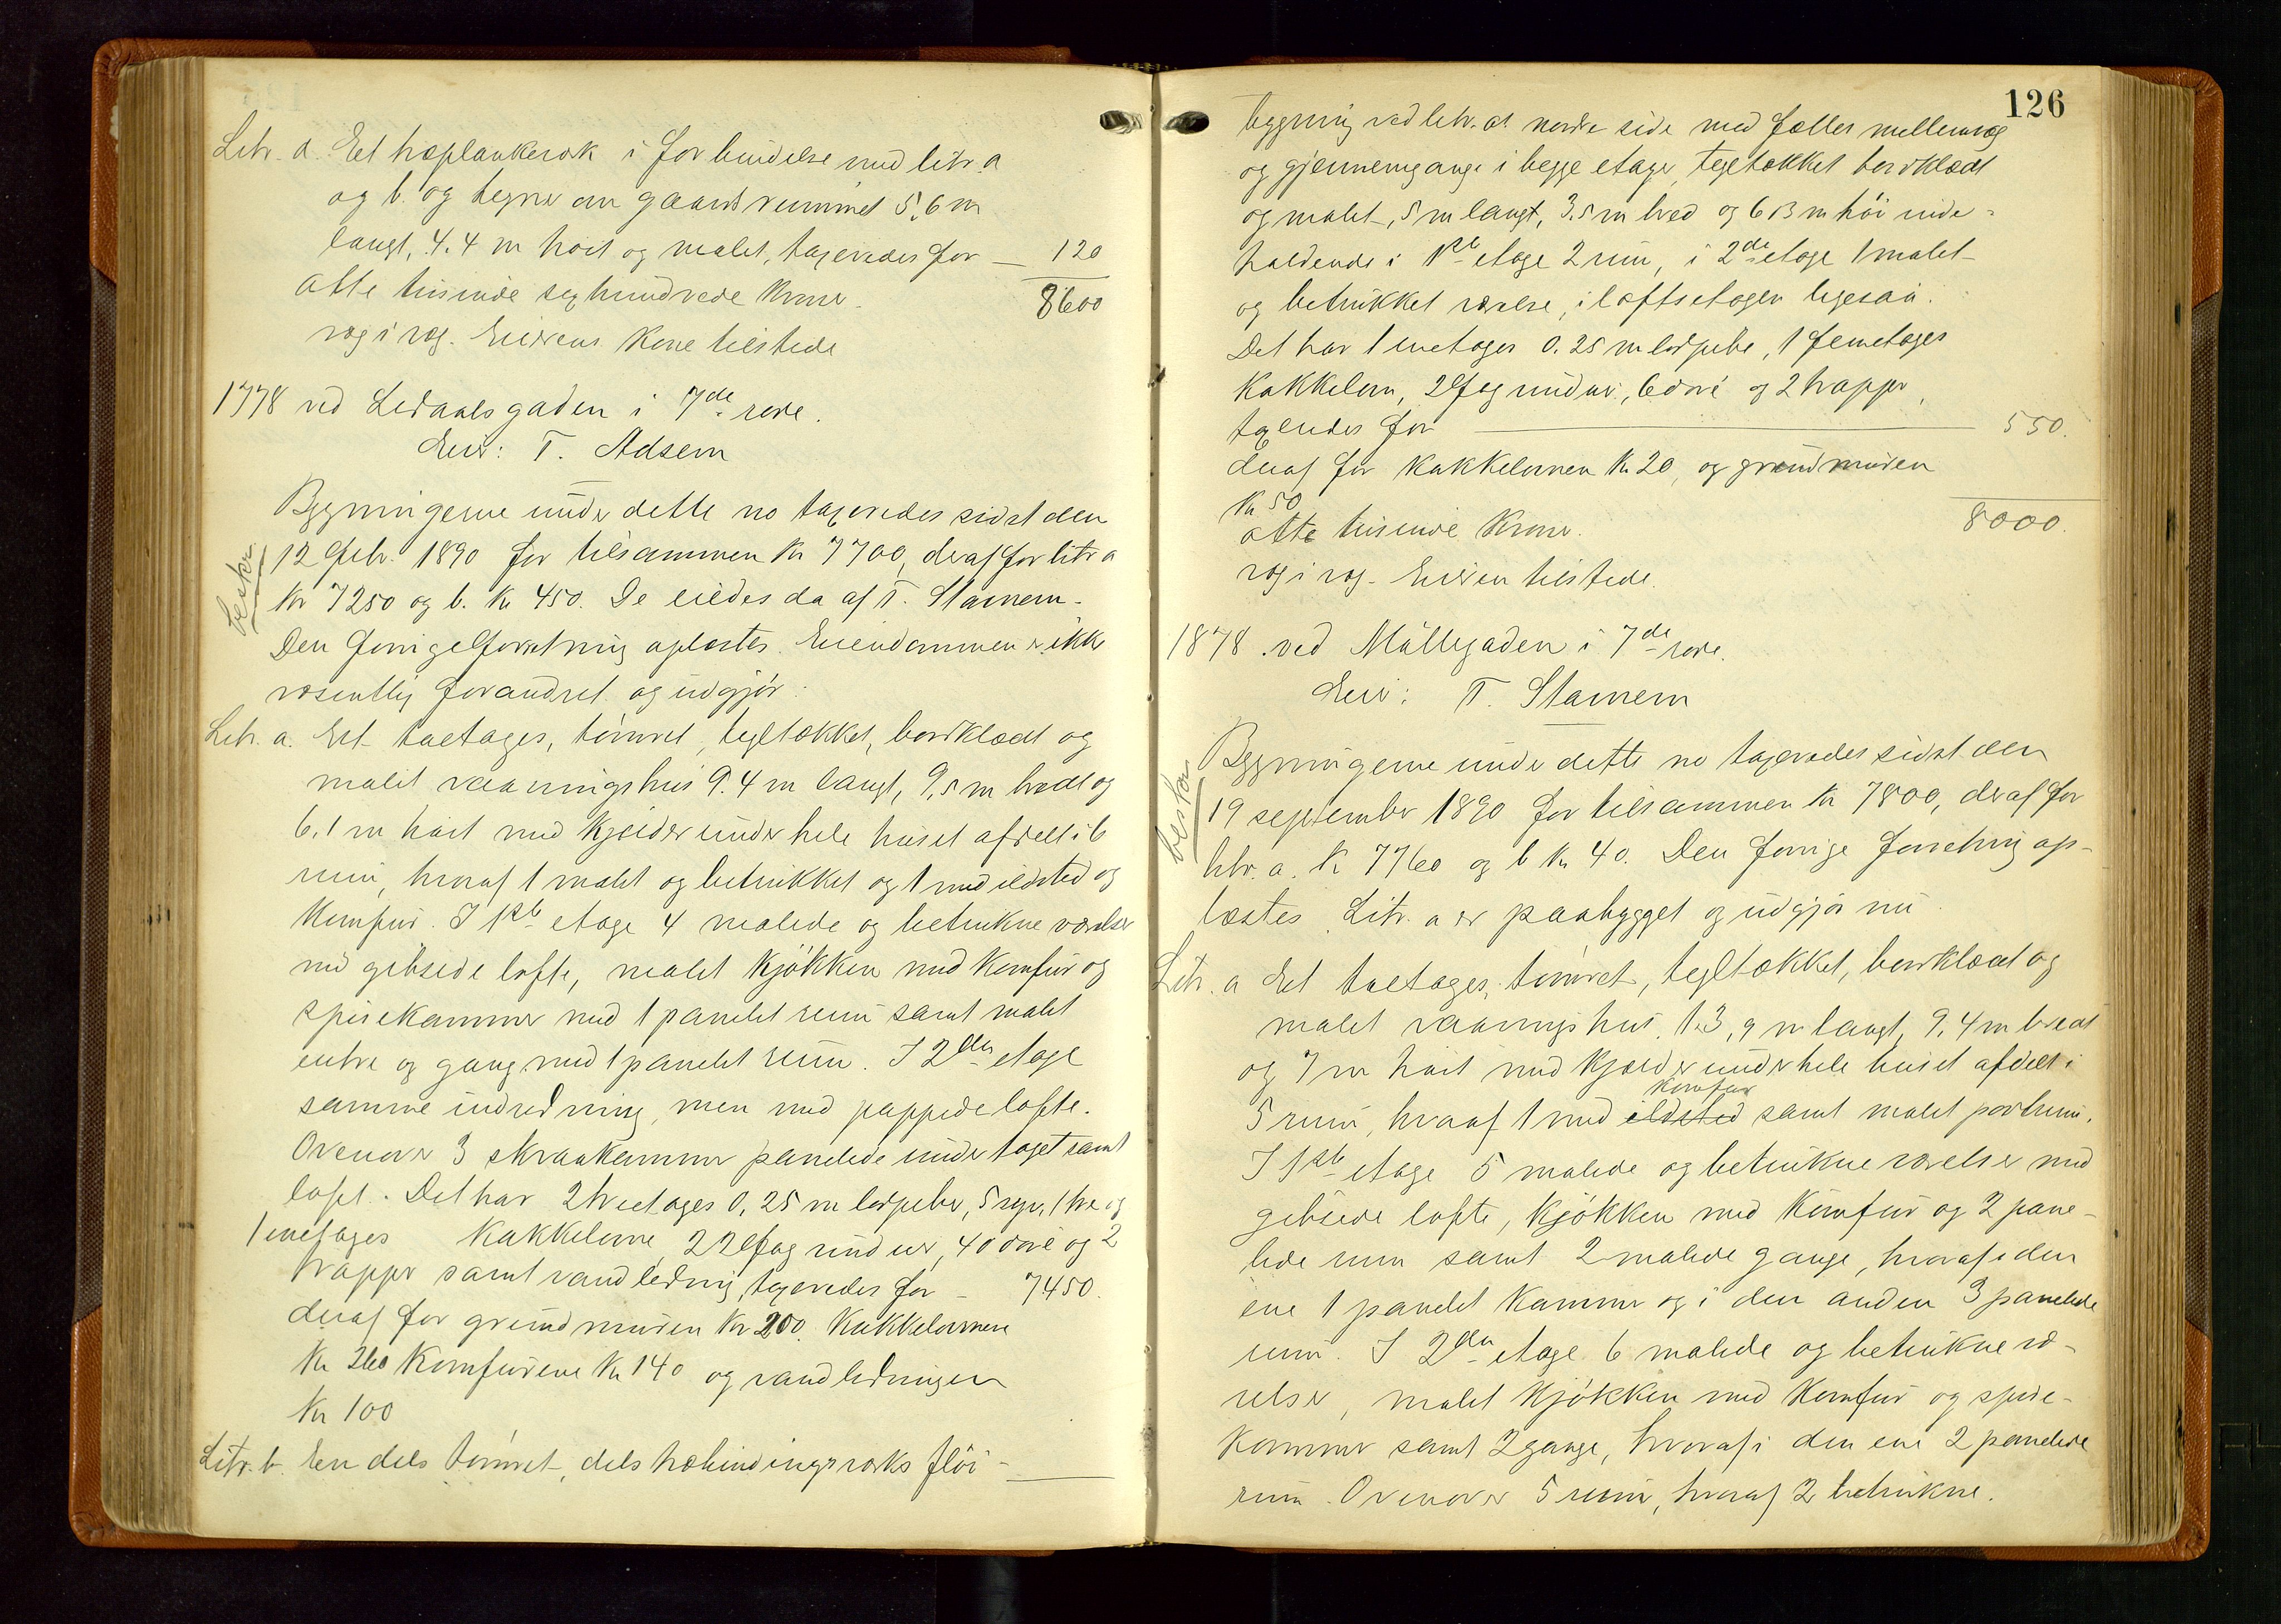 Litr. d. Et træplankeværk i forbindelse med litr. a
og b. og hegner om gaardsrummet 5,6 m
langt, 4.4 m höit og malet, taxeredes for — 120
Otte tusinde sexhundrede Kroner. 8600
væg i væg. Eierens Kone tilstede
1778 ved Ledaalsgaden i 7de rode.
Eier: T. Adsem
Bygningerne under dette no taxeredes sidst den
beskr.
12 febr. 1890 for tilsammen Kr 7700, deraf for litr a
Kr 7250 og b. Kr 450. De eiedes da af T. Stamem.
Den forrige forretning oplæstes. Eiendommen er ikke
væsentlig forandret og udgjör:
Litr. a. Et toetages, tömret, tegltækket, bordklædt og
malet vaaningshus 9.4 m langt, 9,5 m bredt og
6.1 m höit med Kjælder under hele huset afdelt i 6
rum, hvoraf 1 malet og betrukket og 1 med ildsted og
Komfur. I 1ste etage 4 malede og betrukne værelser
med gibsede lofte, malet Kjökken med Komfur og
spisekammer med 1 panelet rum samt malet
entre og gang med 1 panelet rum. I 2den etage
samme indredning, men med pappede lofte.
Ovenover 3 skraakammer panelede under taget samt
loft. Det har 2 treetages 0,25 m lerpiber, 5 
1 enetages Kakkelovne, 22 fag vinduer, 40 döre og 2
trapper samt vandledning, taxeredes for — 7450.
deraf for grundmuren Kr 200. Kakkelovnene
Kr 260 Komfurene Kr 140 og vandledningen
Kr 100
Litr. b. En dels tömret, dels træbindingsværks flöi-
126
bygning ved litr. a's nordre side med fælles mellemvæg
og gjennemgange i begge etager, tegltækket bordklædt
og malet, 5 m langt, 3.5 m bred og 6.3 m höi inde-
holdende i 1ste etage 2 rum, i 2den etage 1 malet
og betrukket værelse, i loftsetagen ligesaa.
Det har 1 enetages 0.25 m lerpibe, 1 femetages
Kakkelovn, 2 fag vinduer, 6 döre og 2 trapper,
taxeredes for — 550.
deraf for Kakkelovnen Kr 20, og grundmuren
Kr 50
otte tusinde Kroner. 8000.
væg i væg. Eieren tilstede.
1878 ved Möllegaden i 7de rode.
Eier: T. Stamem
Bygningerne under dette no taxeredes sidst den
beskr.
19 september 1890 for tilsammen Kr 7800, deraf for
litr. a. Kr 7760 og b Kr 40. Den forrige forretning op-
læstes. Litr. a er paabygget og udgjör nu
Litr. a Et toetages, tömret, tegltækket, bordklædt og
malet vaaningshus. 13,9 m langt, 9,4 m bredt
og 7 m höit med Kjælder under hele huset afdelt i
Komfur
5 rum, hvoraf 1 med ildsted samt malet portrum.
I 1ste etage 5 malede og betrukne værelser med
gibsede lofte, Kjökken med Komfur og 2 pane-
lede rum samt 2 malede gange, hvoraf i den
ene 1 panelet Kammer og i den anden 3 panelede
rum. I 2den etage 6 malede og betrukne væ-
relser, malet Kjökken med Komfur og spise-
kammer samt 2 gange, hvoraf i den ene 2 panelede
rum. Ovenover 5 rum, hvoraf 2 betrukne.